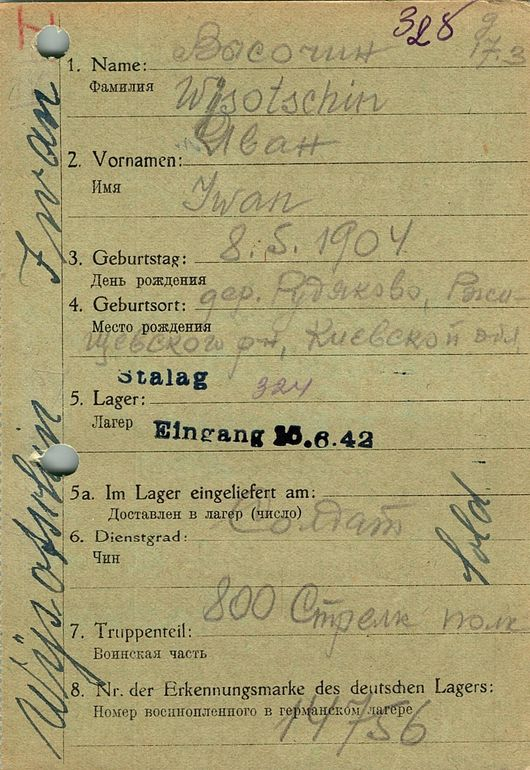 328
17.3
1. Name: Васочин
Фамилия Wysotschin
Иван
2. Vornamen:
Имя
Iwan
3. Geburtstag: 8.5.1904
День рождения
4. Geburtsort: дер. Рудяково, Ржи-
Место рождения
щевского р-н, Киевской обл
Stalag
5. Lager: 324
Лагер
Eingang 15.6.42
5a. Im Lager eingeliefert am:
Доставлен в лагер (число)
Солдат
6. Dienstgrad:
Чин
Sold.
800 Стрелк полк
7. Truppenteil:
Воинская часть
8. Nr. der Erkennungsmarke des deutschen Lagers:
Номер военнопленного в германском лагере
14756
Wysotschin Iwan